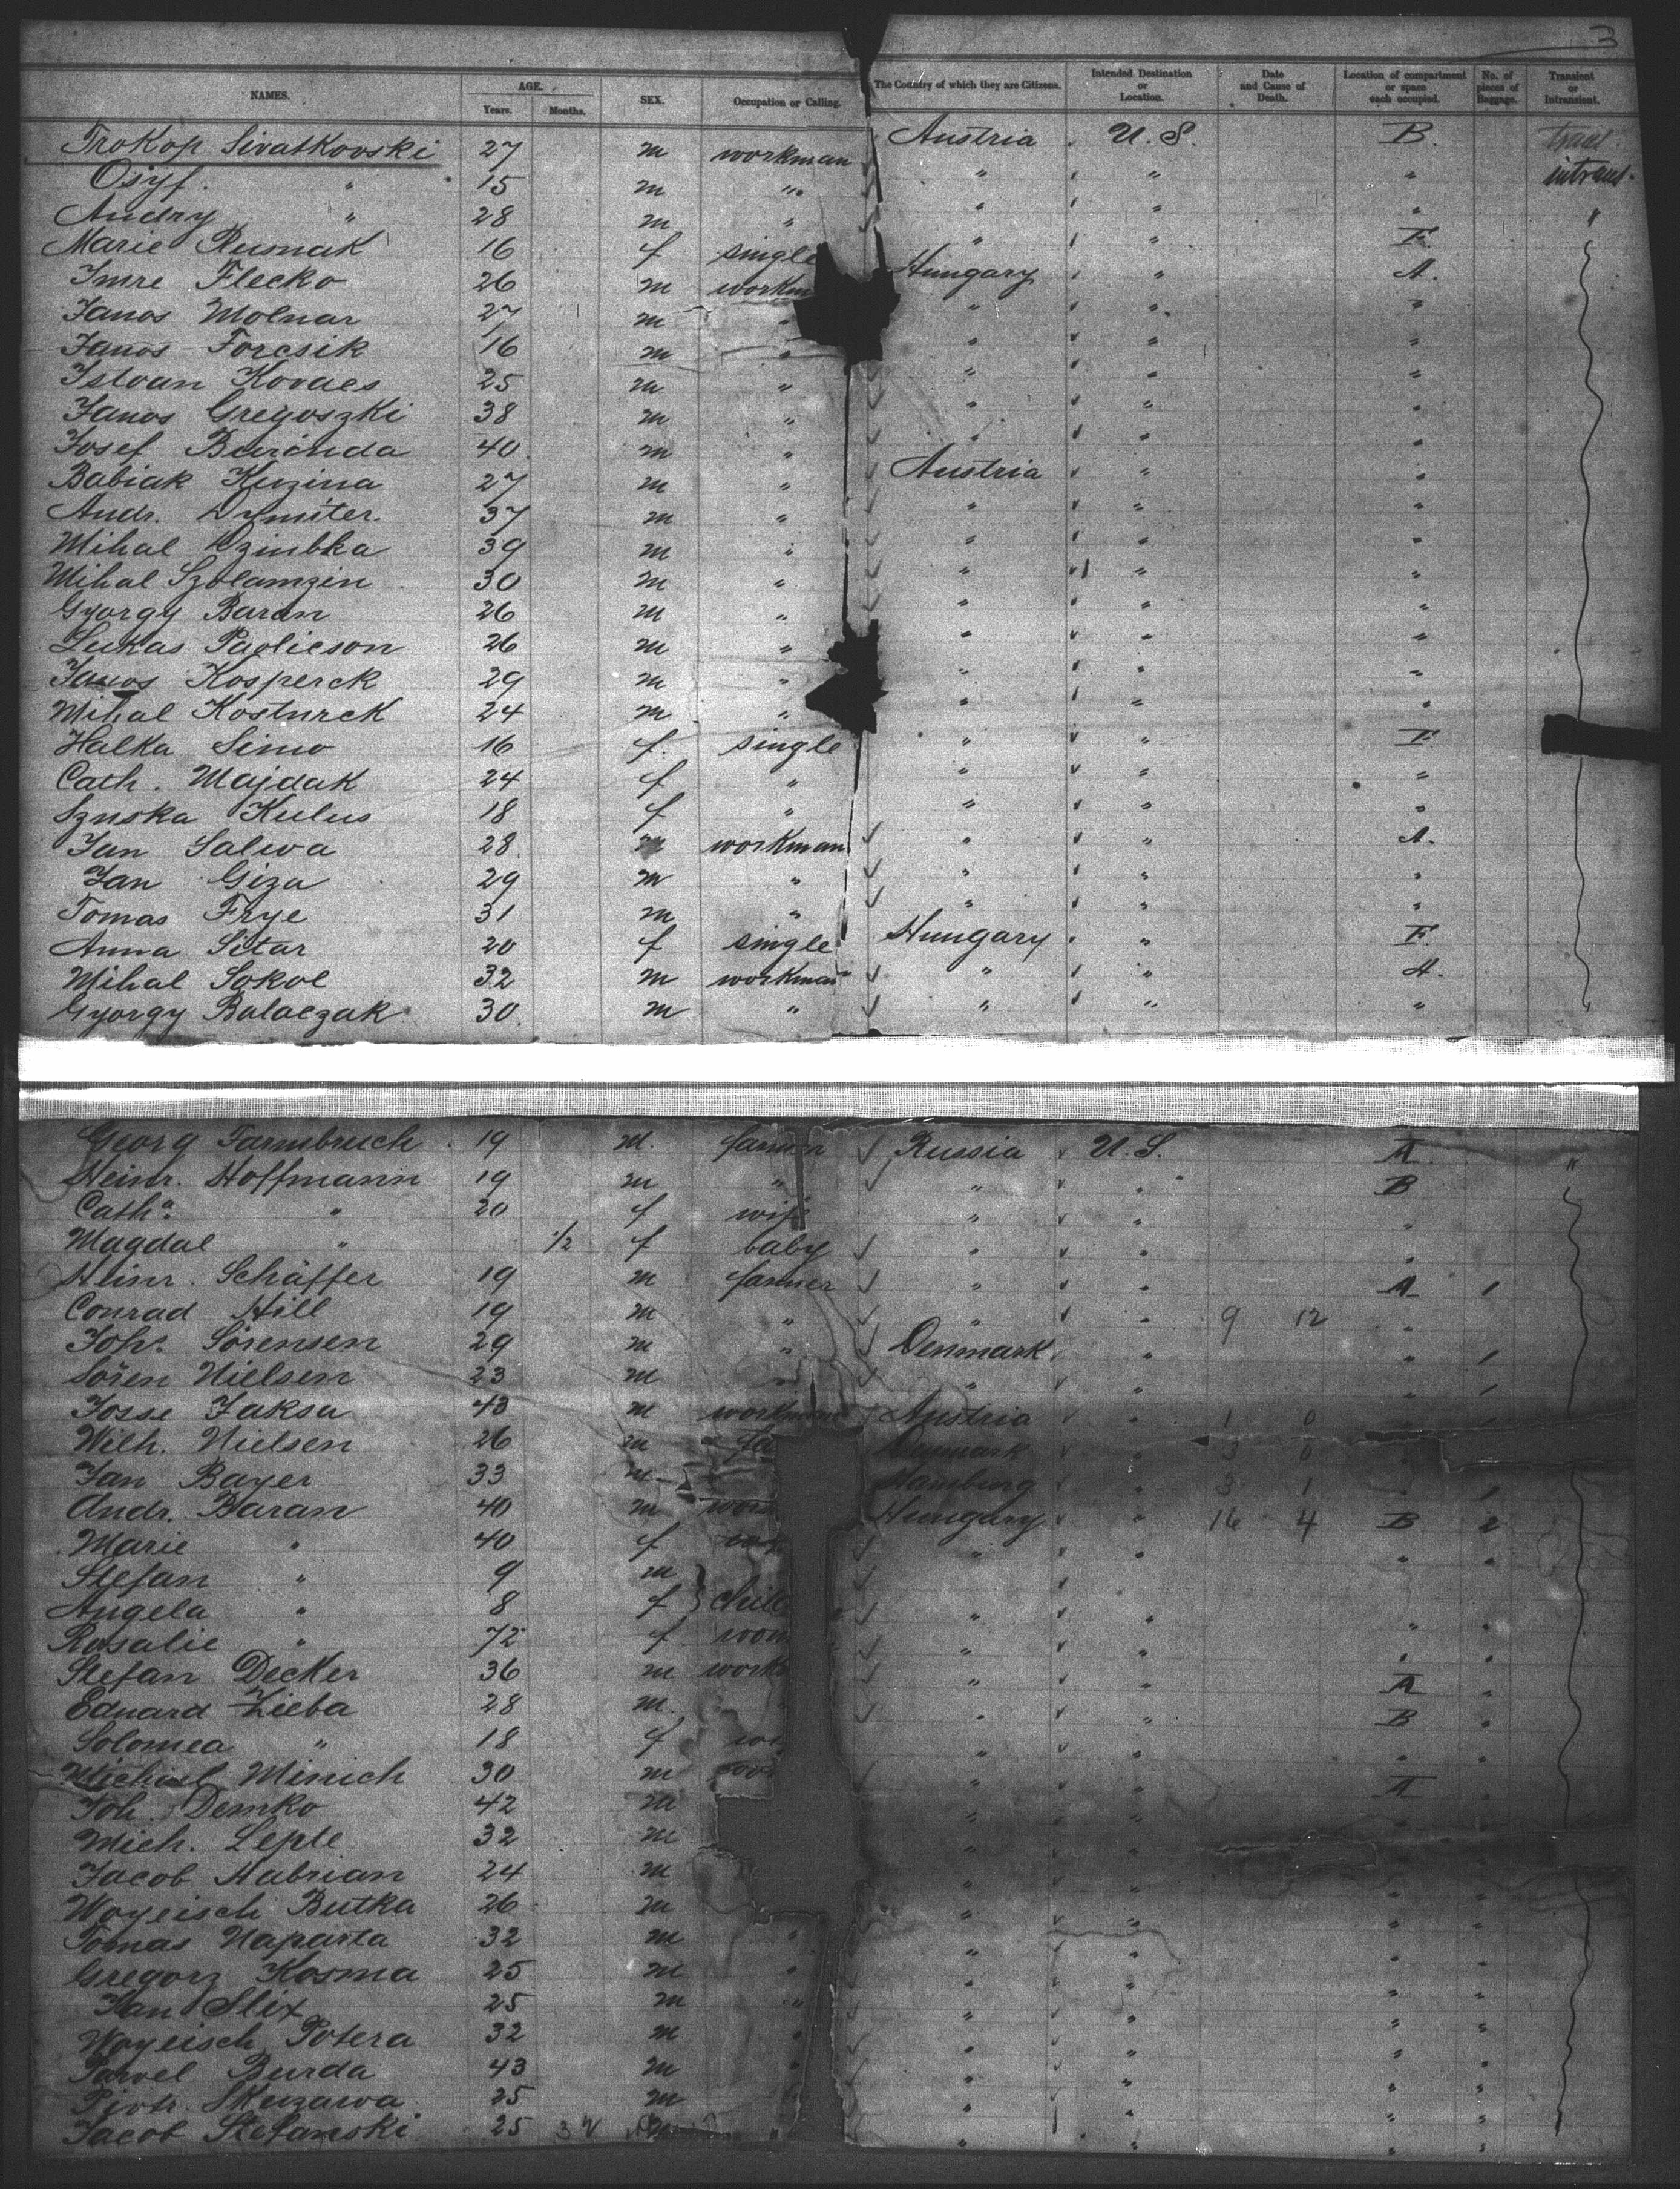 3
NAMES. AGE. Years. Months. SEX. Occupation or Calling. The Country of which they are Citizens. Intended Destination or Location. Date and Cause of Death. Location of compartment or space each occupied. No. of pieces of Baggage. Transient or Intransient.
Prokop Sivatkovski 27 m workman Austria U.S. B. trans
Osyf " 15 m " " " " intrans.
Andry " 28 m " " " " "
Marie Rusnak 16 f single " " F.
Imre Flecko 26 m workm Hungary " A.
Janos Molnar 27 m " " " "
Janos Forcsik 16 m " " " "
Istvan Kovacs 25 m " " " "
Janos Gregoszki 38 m " " " "
Josef Burinda 40 m " " " "
Babiak Kuzina 27 m " Austria " "
Andr. Dymiter. 37 m " " " "
Mihal Dziubka 39 m " " " "
Mihal Szolamzin 30 m " " " "
Gyorgy Baran 26 m " " " "
Lukas Paolicson 26 m " " " "
Janos Kosperck 29 m " " " "
Mihal Kosturck 24 m " " " "
Halka Simo 16 f. single " " F
Cath. Majdak 24 f " " " "
Sznska Kulus 18 f " " " "
Jan Salwa 28 m workman " " A.
Jan Giza 29 m " " " "
Tomas Frye 31 m " " " "
Anna Sitar 20 f single Hungary " F.
Mihal Sokol 32 m workman " " A.
Gyorgy Balaczak 30 m " " " "
Georg Farmbruch 19 m. farmer Russia U.S. A "
Heinr. Hoffmann 19 m " " " B
Catha " 20 f wife " " "
Magdal " 1/2 f baby " " "
Heinr. Schäffer 19 m farmer " " A 1
Conrad Hill 19 m " " " 9 12 "
Joh. Sörensen 29 m " Denmark " " 1
Sören Nielsen 23 m " " " " 1
Josse Jaksa 43 m workman Austria " 1 0 "
Wilh. Nielsen 26 m Denmark " 3 0
Jan Bayer 33 m Hamburg " 3 1
Andr. Baran 40 m wor Hungary " 16 4 B 2
Marie " 40 f " " " "
Stefan " 9 m
Angela " 8 f chil " " " "
Rosalie " 72 f wom " " " "
Stefan Decker 36 m work " " A "
Eduard Zieba 28 m " " B "
Solomea " 18 f " " " "
Michael Minich 30 m " " A
Joh. Demko 42 m " "
Mich. Lepte 32 m "
Jacob Habrian 24 m " " " "
Woyeisch Butka 26 m " " " "
Tomas Naparta 32 m " " " " "
Gregorz Kosma 25 m " " " " "
Jan Slix 25 m " " " " "
Woyeisch Potera 32 m " " " " "
Pawel Burda 43 m " " " " "
Piotr. Skuzawa 25 m " " " "
Jacob Stefanski 25 " " " "